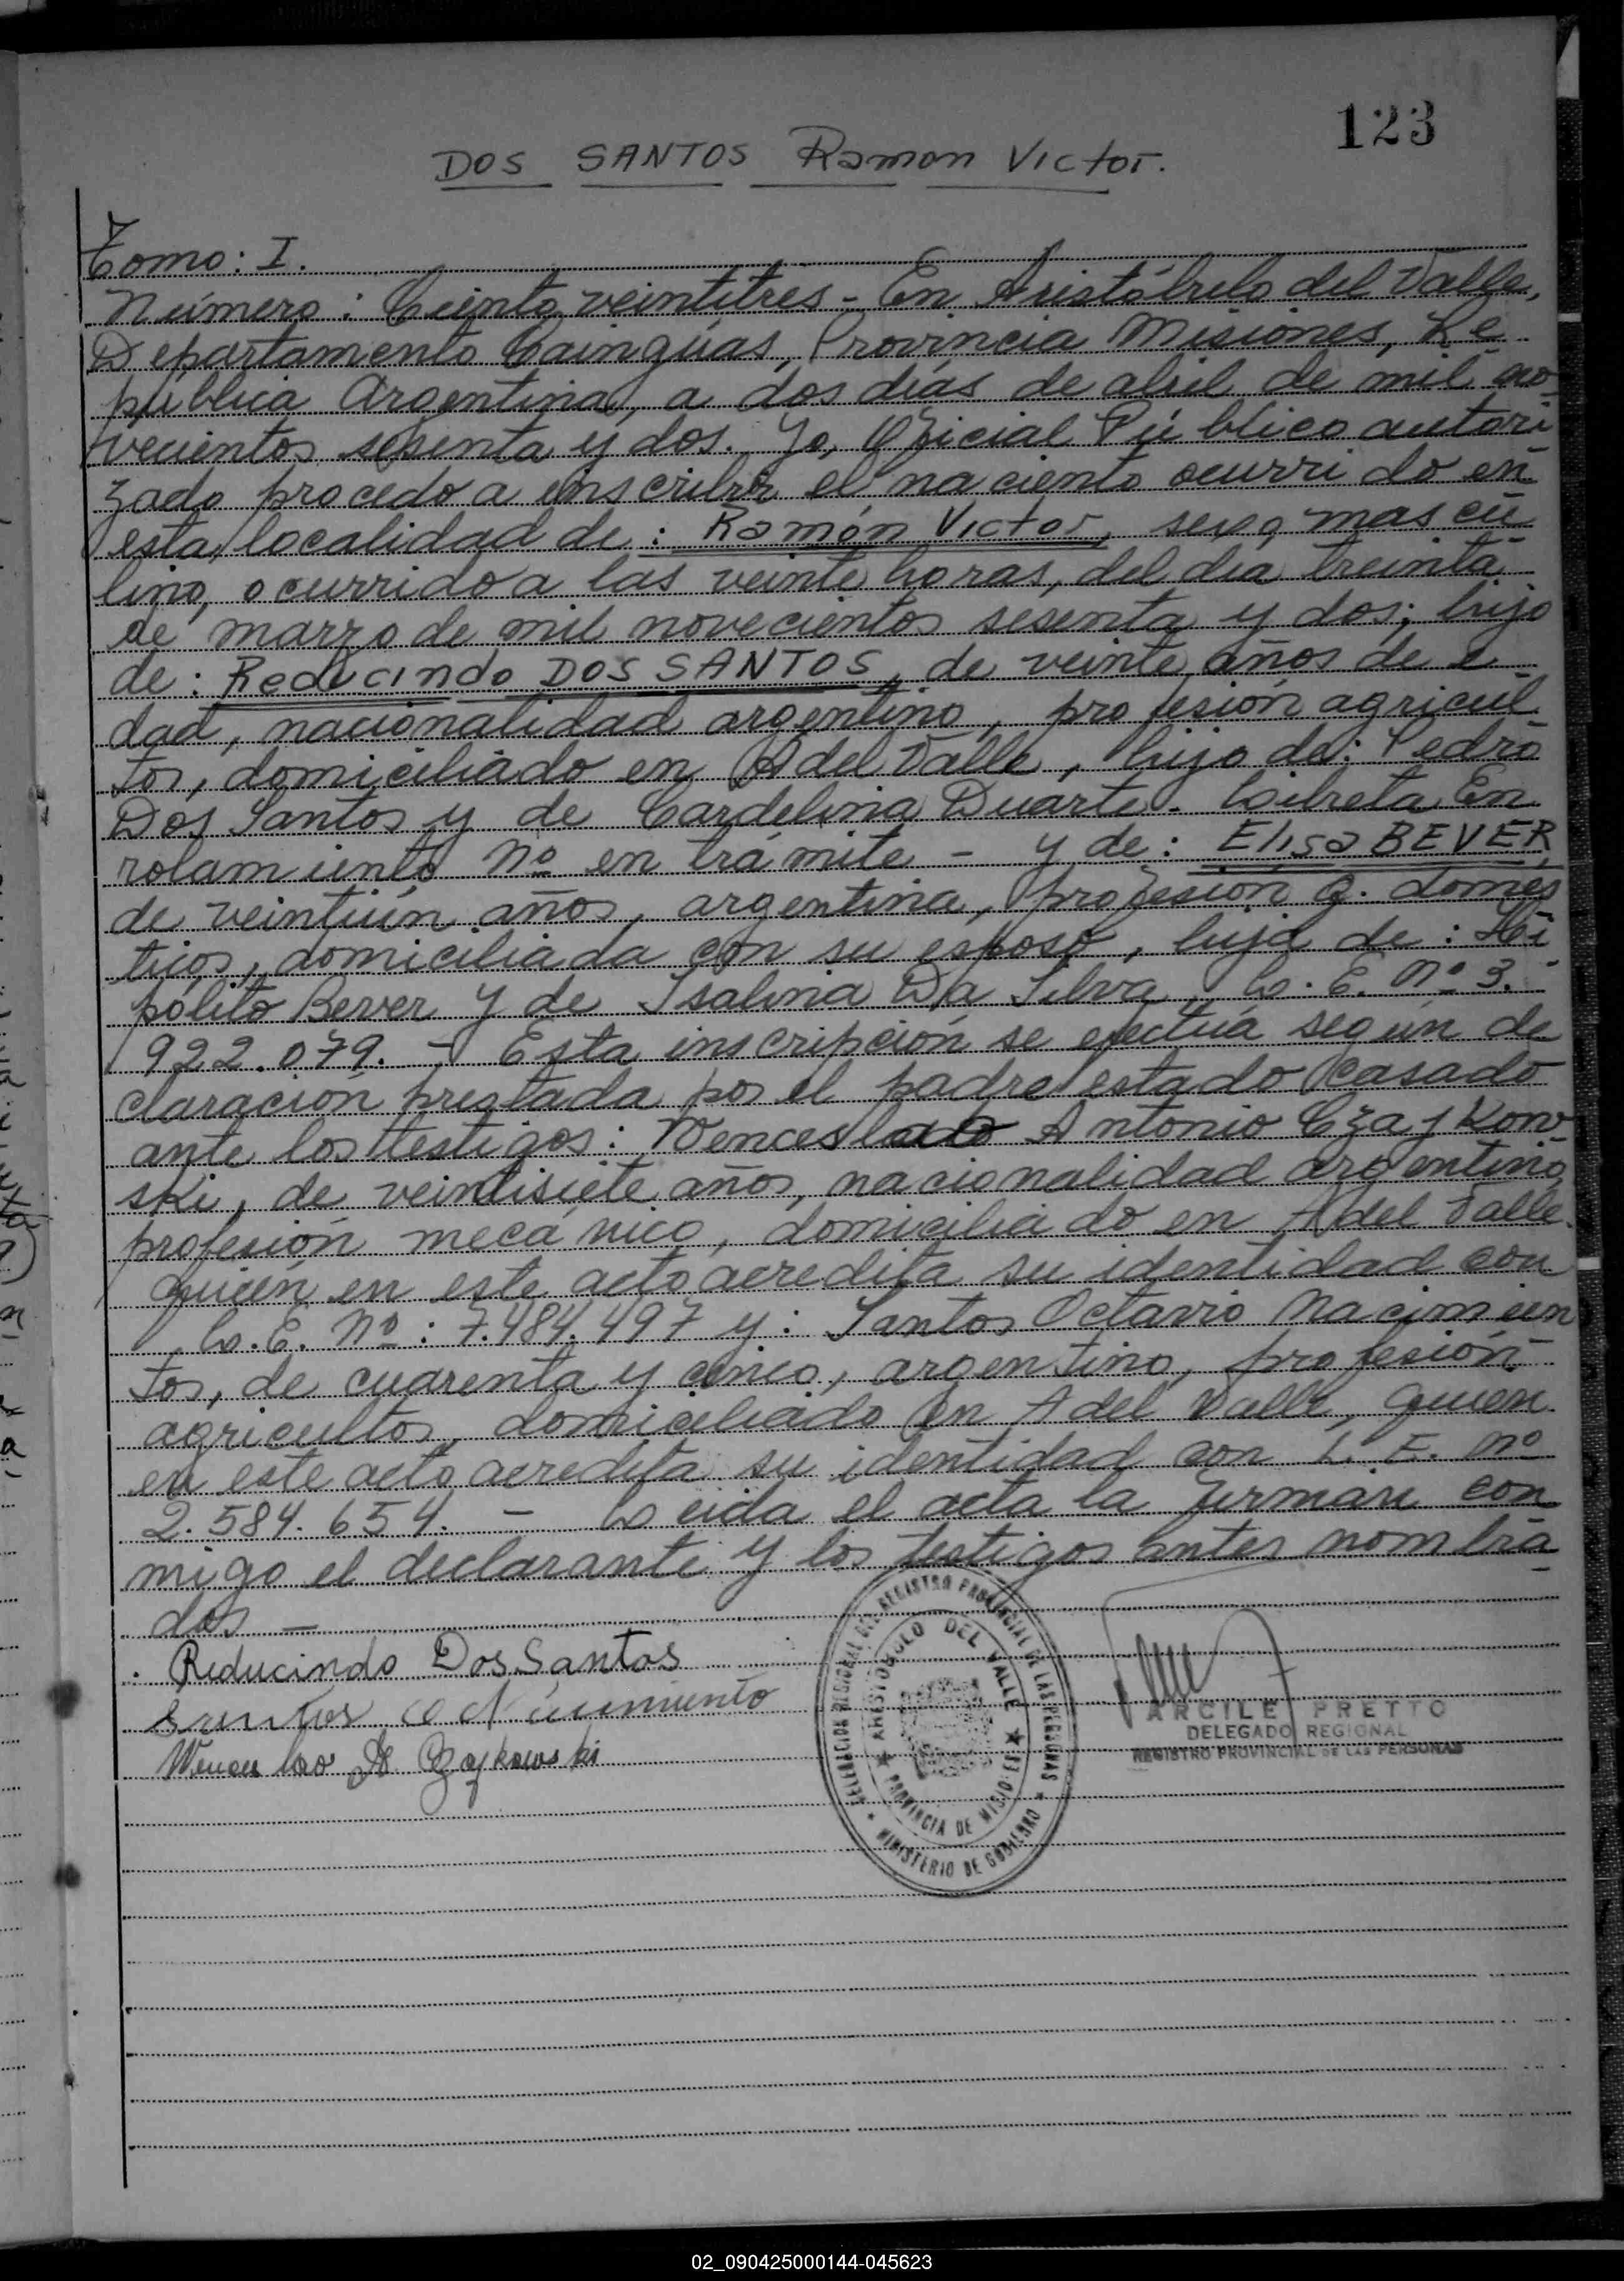 123
DOS SANTOS Ramon Victor.
Tomo: I.
Número: Ciento veintitres - En Aristóbulo del Valle,
Departamento Cainguás, Provincia Misiones, Re
pública Argentina, a dos días de abril de mil no
vecientos sesenta y dos. Yo, Oficial Público autori
zado procedo a inscribir el naciento ocurrido en
esta localidad de: Ramón Victor, sexo mascu
lino, ocurrido a las veinte horas, del dia treinta
de marzo de mil novecientos sesenta y dos; hijo
de: Reducindo DOS SANTOS, de veinte años de e
dad, nacionalidad argentino, profesión agricul
tor, domiciliado en A del Valle, hijo de: Pedro
Dos Santos y de Cardelina Duarte - Libreta En
rolamiento Nº en trámite - y de: Elisa BEVER
de veintiún años, argentina, profesión q. domés
ticos, domiciliada con su esposo, hija de: Hi
pólito Bever y de Isalina Da Silva, L.E. Nº 3.
922.079. - Esta inscripción se efectúa según de
claración prestada por el padre estado casado
ante los testigos: Wenceslao Antonio Czajkow
ski, de veintisiete años, nacionalidad argentino
profesión mecánico, domiciliado en A del Valle.
quién en este acto acredita su identidad con
L.E. Nº: 7.484.497 y: Santos Octavio Nacimien
tos, de cuarenta y cinco, argentino, profesión
agricultor, domiciliado en A del Valle, quien
en este acto acredita su identidad con L.E. Nº
2.584.654. - Leida el acta la firman con
migo el declarante y los testigos antes nombra
dos -
Reducindo Dos Santos
Santos
Wenceslao A Czajkowski
DELEGACION REGIONAL DEL REGISTRO PROVINCIAL DE LAS PERSONAS
ARISTOBULO DEL VALLE
PROVINCIA DE MISIONES
MINISTERIO DE GOBIERNO
ARCILE PRETTO
DELEGADO REGIONAL
REGISTRO PROVINCIAL DE LAS PERSONAS
02_090425000144-045623